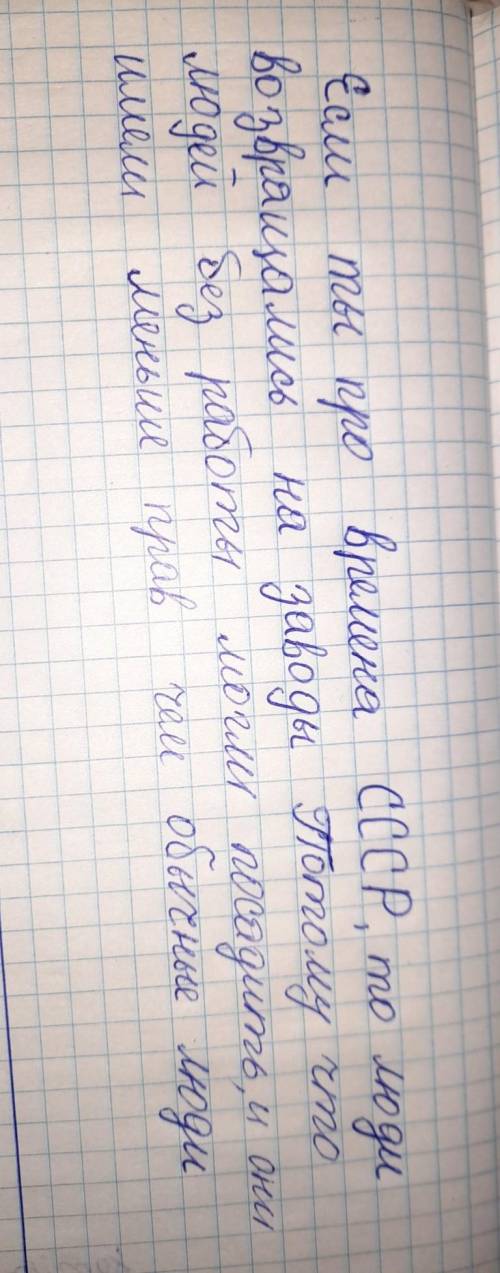 Если ты про времена СССР, то люди
возвращались на заводы Потому что
людей без работы могли посадить, и они
имели меньше прав чем обычные люди